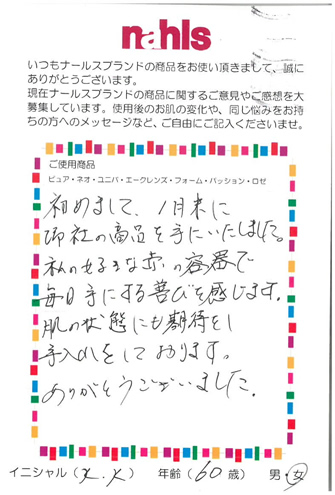 nahls
いつもナールスブランドの商品をお使い頂きまして、誠に
ありがとうございます。
現在ナールスブランドの商品に関するご意見やご感想を大
募集しています。使用後のお肌の変化や、同じ悩みをお持
ちの方へのメッセージなど、ご自由にご記入くださいませ。
ご使用商品
ピュア・ネオ・ユニバ・エークレンズ・フォーム・パッション・ロゼ
初めまして、1月末に
御社の商品を手にいたしました。
私の好きな赤の容器で
毎日手にする喜びを感じます。
肌の状態にも期待をし
手入れをしております。
ありがとうございました。
イニシャル( . ) 年齢(60歳) 男・女